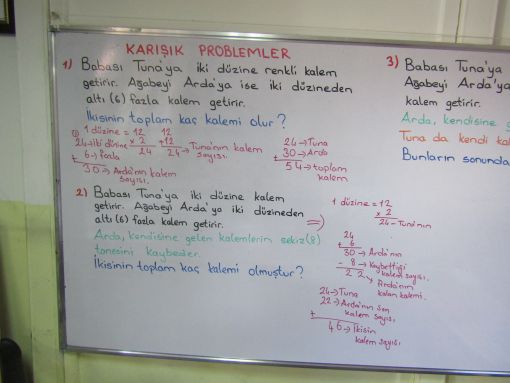 KARIŞIK PROBLEMLER
1) Babası Tuna'ya iki düzine renkli kalem
getirir. Ağabeyi Arda'ya ise iki düzineden
altı (6) fazla kalem getirir.
İkisinin toplam kaç kalemi olur?
1 düzine = 12
24 → iki düzine x 2
+ 6 → fazla 24
30 → Arda'nın kalem
sayısı.
12
+12
24 → Tuna'nın kalem
sayısı.
24 → Tuna
30 → Arda
+
54 → toplam
kalem
2) Babası Tuna'ya iki düzine kalem
getirir. Ağabeyi Arda'ya iki düzineden
altı (6) fazla kalem getirir.
Arda, kendisine gelen kalemlerin sekiz (8)
tanesini kaybeder.
İkisinin toplam kaç kalemi olmuştur?
1 düzine = 12
x 2
24 → Tuna'nın
24
+ 6
30 → Arda'nın
- 8 → Kaybettiği
kalem sayısı.
22 → Arda'nın
kalan kalemi.
24 → Tuna
22 → Arda'nın son
kalem sayısı
+
46 → İkisin
kalem sayısı
3) Babası Tuna'ya
Ağabeyi Arda'y
kalem getirir.
Arda, kendisine g
Tuna da kendi kal
Bunların sonund